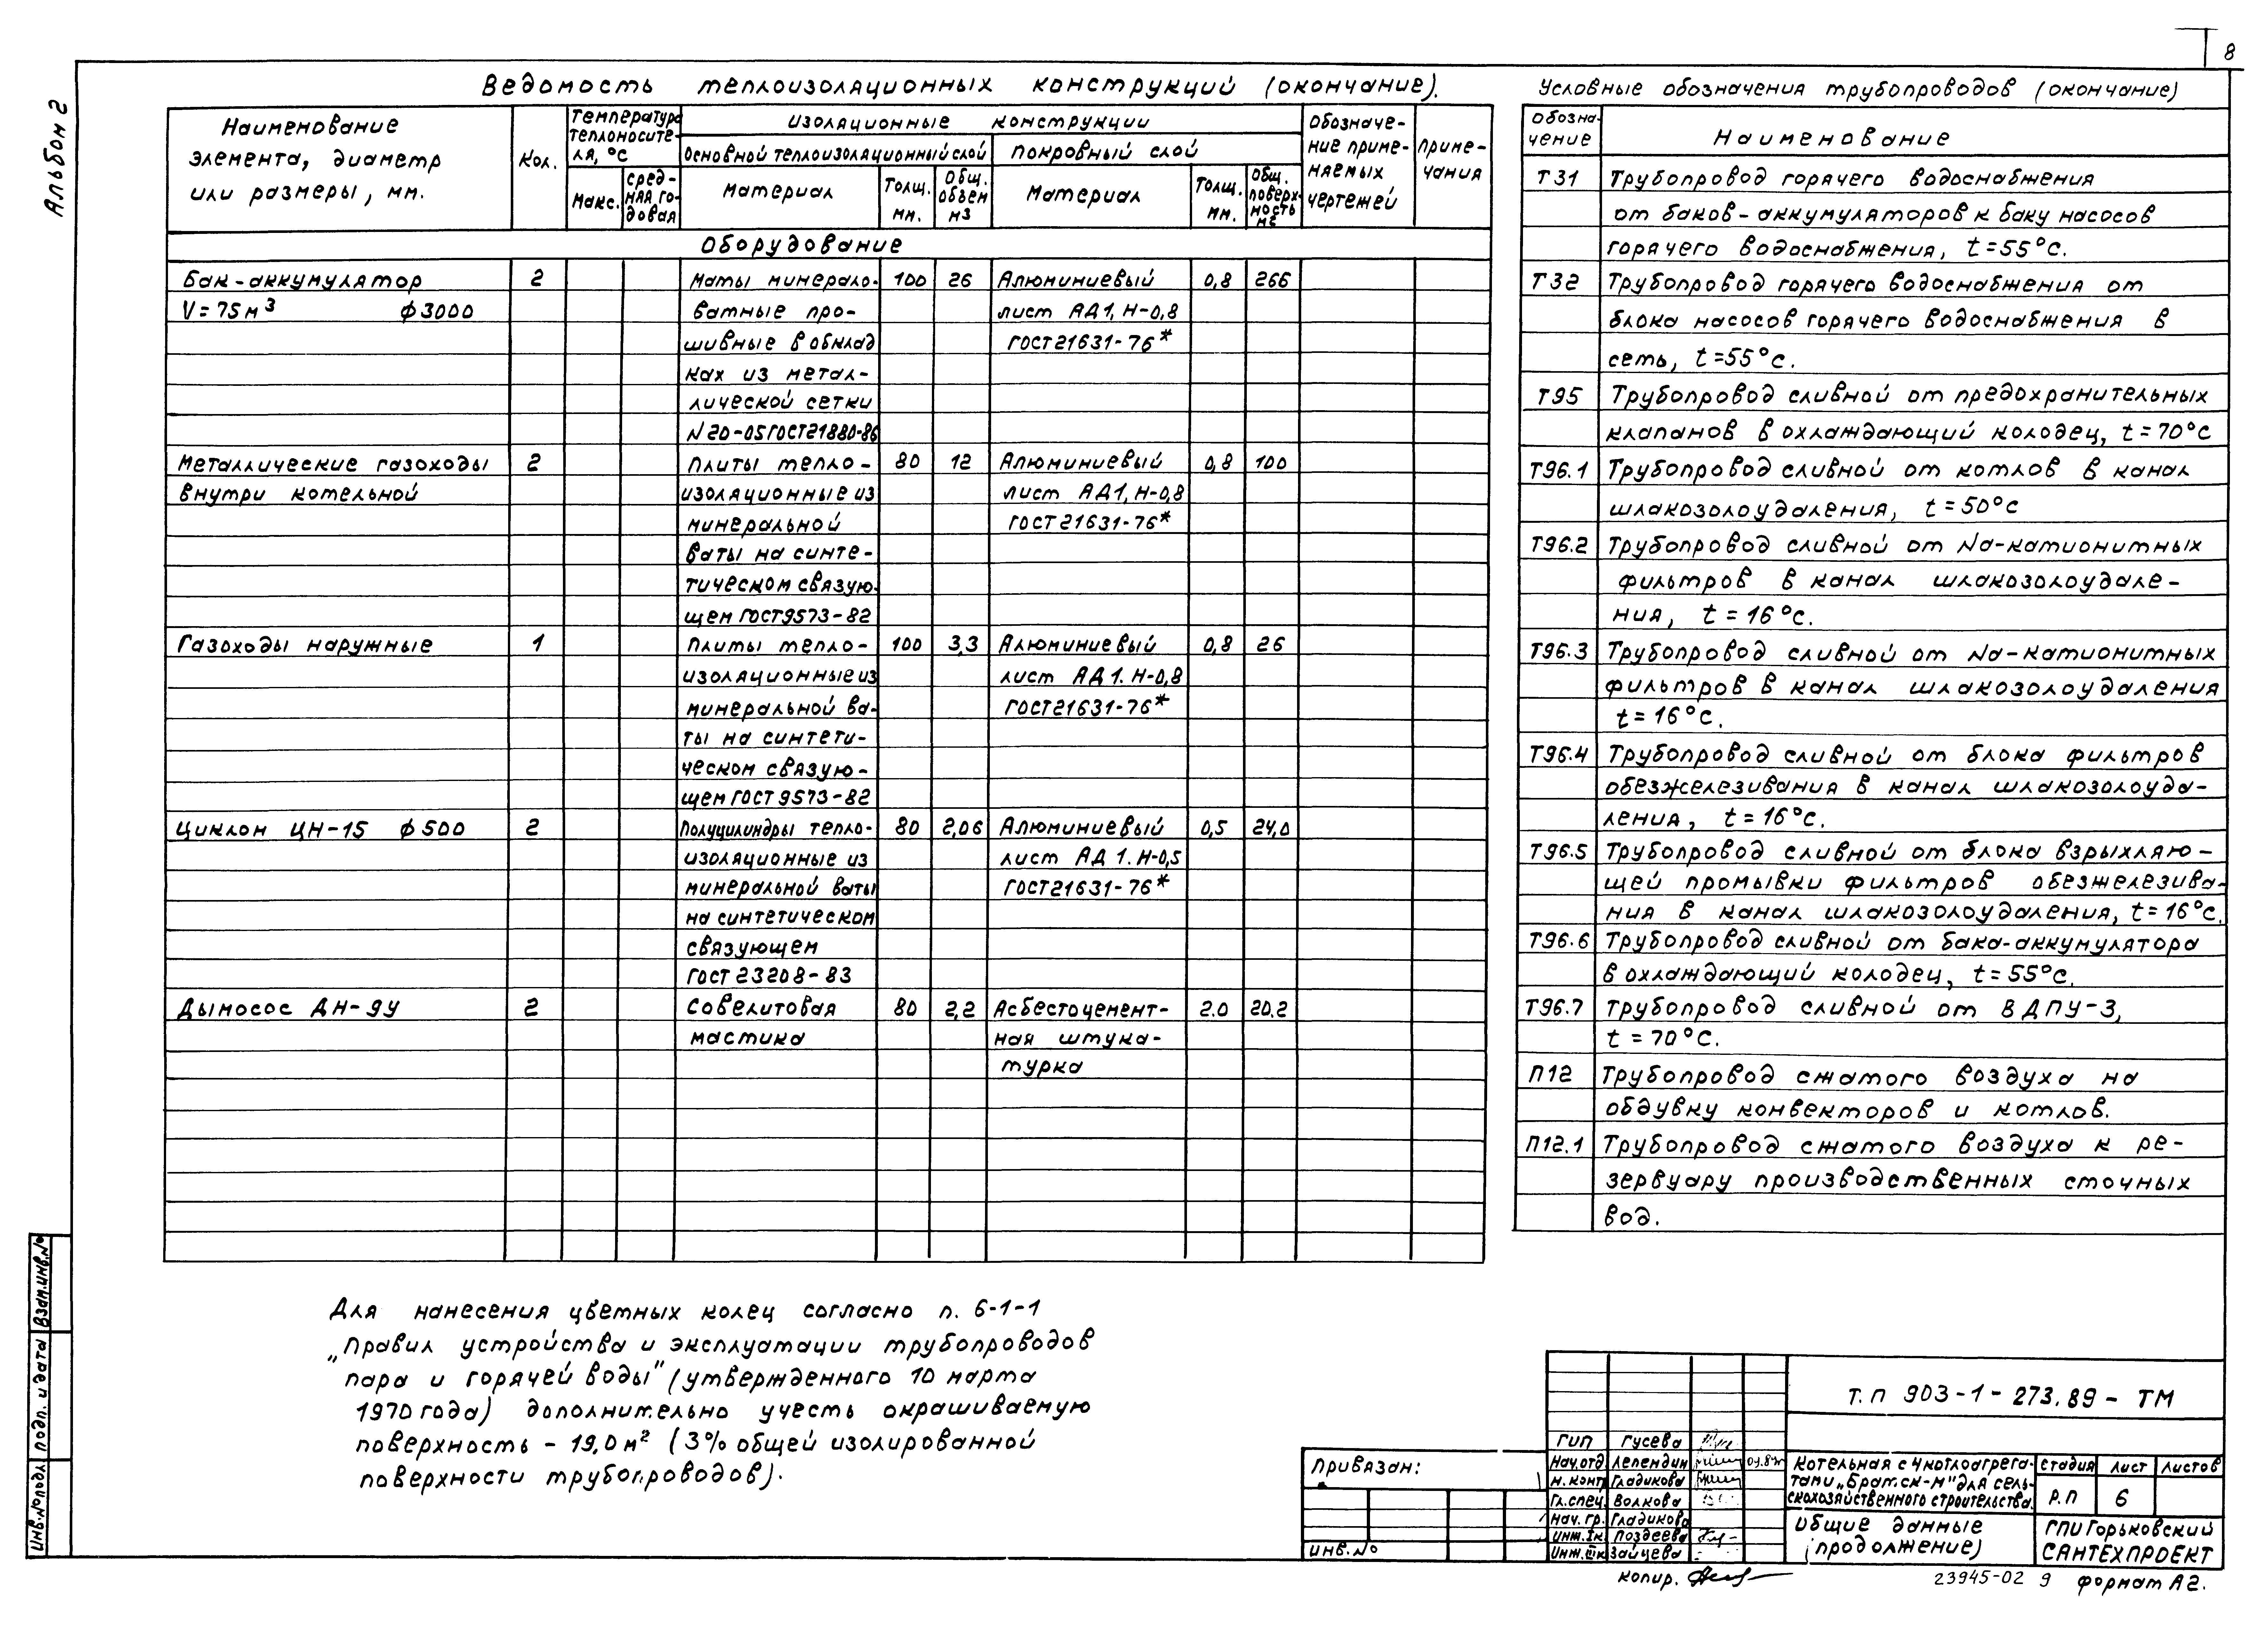 8
Альбом 2
Ведомость теплоизоляционных конструкций (окончание).
Наименование
элемента, диаметр
или размеры, мм.
Кол.
Температура
теплоносите-
ля, °С
Макс.
сред-
няя го-
довая
Изоляционные конструкции
Основной теплоизоляционный слой
Покровный слой
Материал
Толщ.
мм.
Общ.
объем
м3
Материал
Толщ.
мм.
Общ.
поверх-
ность
м2
Обозначе-
ние приме-
няемых
чертежей
Приме-
чания
Оборудование
Бак-аккумулятор 2 Маты минерало- 100 26 Алюминиевый 0,8 266
V=75м³ ф3000 ватные про- лист АД1, Н-0,8
шивные в обклад ГОСТ21631-76*
ках из метал-
лической сетки
N20-05ГОСТ21880-86
Металлические газоходы 2 Плиты тепло- 80 12 Алюминиевый 0,8 100
внутри котельной изоляционные из лист АД1, Н-0,8
минеральной ГОСТ21631-76*
ваты на синте-
тическом связую-
щем ГОСТ9573-82
Газоходы наружные 1 Плиты тепло- 100 3,3 Алюминиевый 0,8 26
изоляционные из лист АД1. Н-0,8
минеральной ва- ГОСТ21631-76*
ты на синтети-
ческом связую-
щем ГОСТ 9573-82
Циклон ЦН-15 ф500 2 Полуцилиндры тепло- 80 2,06 Алюминиевый 0,5 24,0
изоляционные из лист АД1. Н-0,5
минеральной ваты ГОСТ21631-76*
на синтетическом
связующем
ГОСТ 23208-83
Дымосос ДН-9у 2 Совелитовая 80 2,2 Асбестоцемент- 2.0 20.2
мастика ная штука-
турка
Условные обозначения трубопроводов (окончание)
Обозна-
чение
Наименование
Т31 Трубопровод горячего водоснабжения
от баков-аккумуляторов к баку насосов
горячего водоснабжения, t=55°С.
Т32 Трубопровод горячего водоснабжения от
блока насосов горячего водоснабжения в
сеть, t=55°С.
Т95 Трубопровод сливной от предохранительных
клапанов в охлаждающий колодец, t=70°С
Т96.1 Трубопровод сливной от котлов в канал
шлакозолоудаления, t=50°С
Т96.2 Трубопровод сливной от Na-катионитных
фильтров в канал шлакозолоудале-
ния, t=16°С.
Т96.3 Трубопровод сливной от Na-катионитных
фильтров в канал шлакозолоудаления
t=16°С.
Т96.4 Трубопровод сливной от блока фильтров
обезжелезивания в канал шлакозолоуда-
ления, t=16°С.
Т96.5 Трубопровод сливной от блока взрыхляю-
щей промывки фильтров обезжелезива-
ния в канал шлакозолоудаления, t=16°С.
Т96.6 Трубопровод сливной от бака-аккумулятора
в охлаждающий колодец, t=55°С.
Т96.7 Трубопровод сливной от ВДПУ-3,
t=70°С.
П12 Трубопровод сжатого воздуха на
обдувку конвекторов и котлов.
П12.1 Трубопровод сжатого воздуха к ре-
зервуару производственных сточных
вод.
Для нанесения цветных колец согласно п. 6-1-1
„Правил устройства и эксплуатации трубопроводов
пара и горячей воды" (утвержденного 10 марта
1970 года) дополнительно учесть окрашиваемую
поверхность - 19,0 м² (3% общей изолированной
поверхности трубопроводов).
Инв.№подл.
Подп. и дата
Взам.инв.№
Привязан:
Инв.№
ГИП Гусева
Нач.отд Лепендин
Н.конт Гладикова
Гл.спец. Волкова
Нач.гр. Гладикова
Инж.Iк. Поздеева
Инж.IIIк Зайцева
Т.п 903-1-273.89-ТМ
Котельная с 4 котлоагрега-
тами „Братск-М" для сель-
скохозяйственного строительства.
стадия лист листов
Р.П 6
Общие данные
(продолжение)
ГПИ Горьковский
САНТЕХПРОЕКТ
Копир.
23945-02 9
формат А2.